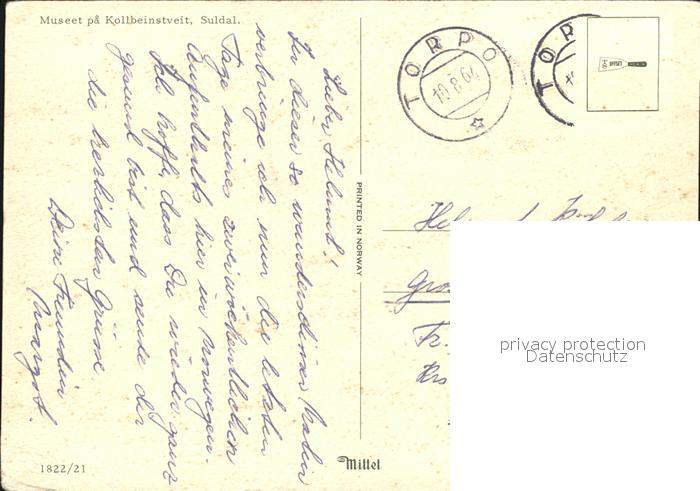 Museet på Kollbeinstveit, Suldal.
Lieber Helmut!
In dieser so wunderschönen Natur
verbringe ich nun die letzten
Tage meines zweiwöchentlichen
Aufenthalts hier in Norwegen.
Ich hoffe, dass Du wieder ganz
gesund bist und sende dir
die herzlichsten Grüsse.
Deine Freundin
Margot.
1822/21
PRINTED IN NORWAY
Mittet
TORPO
10.8.64
TOR
OFFSET
privacy protection
Datenschutz